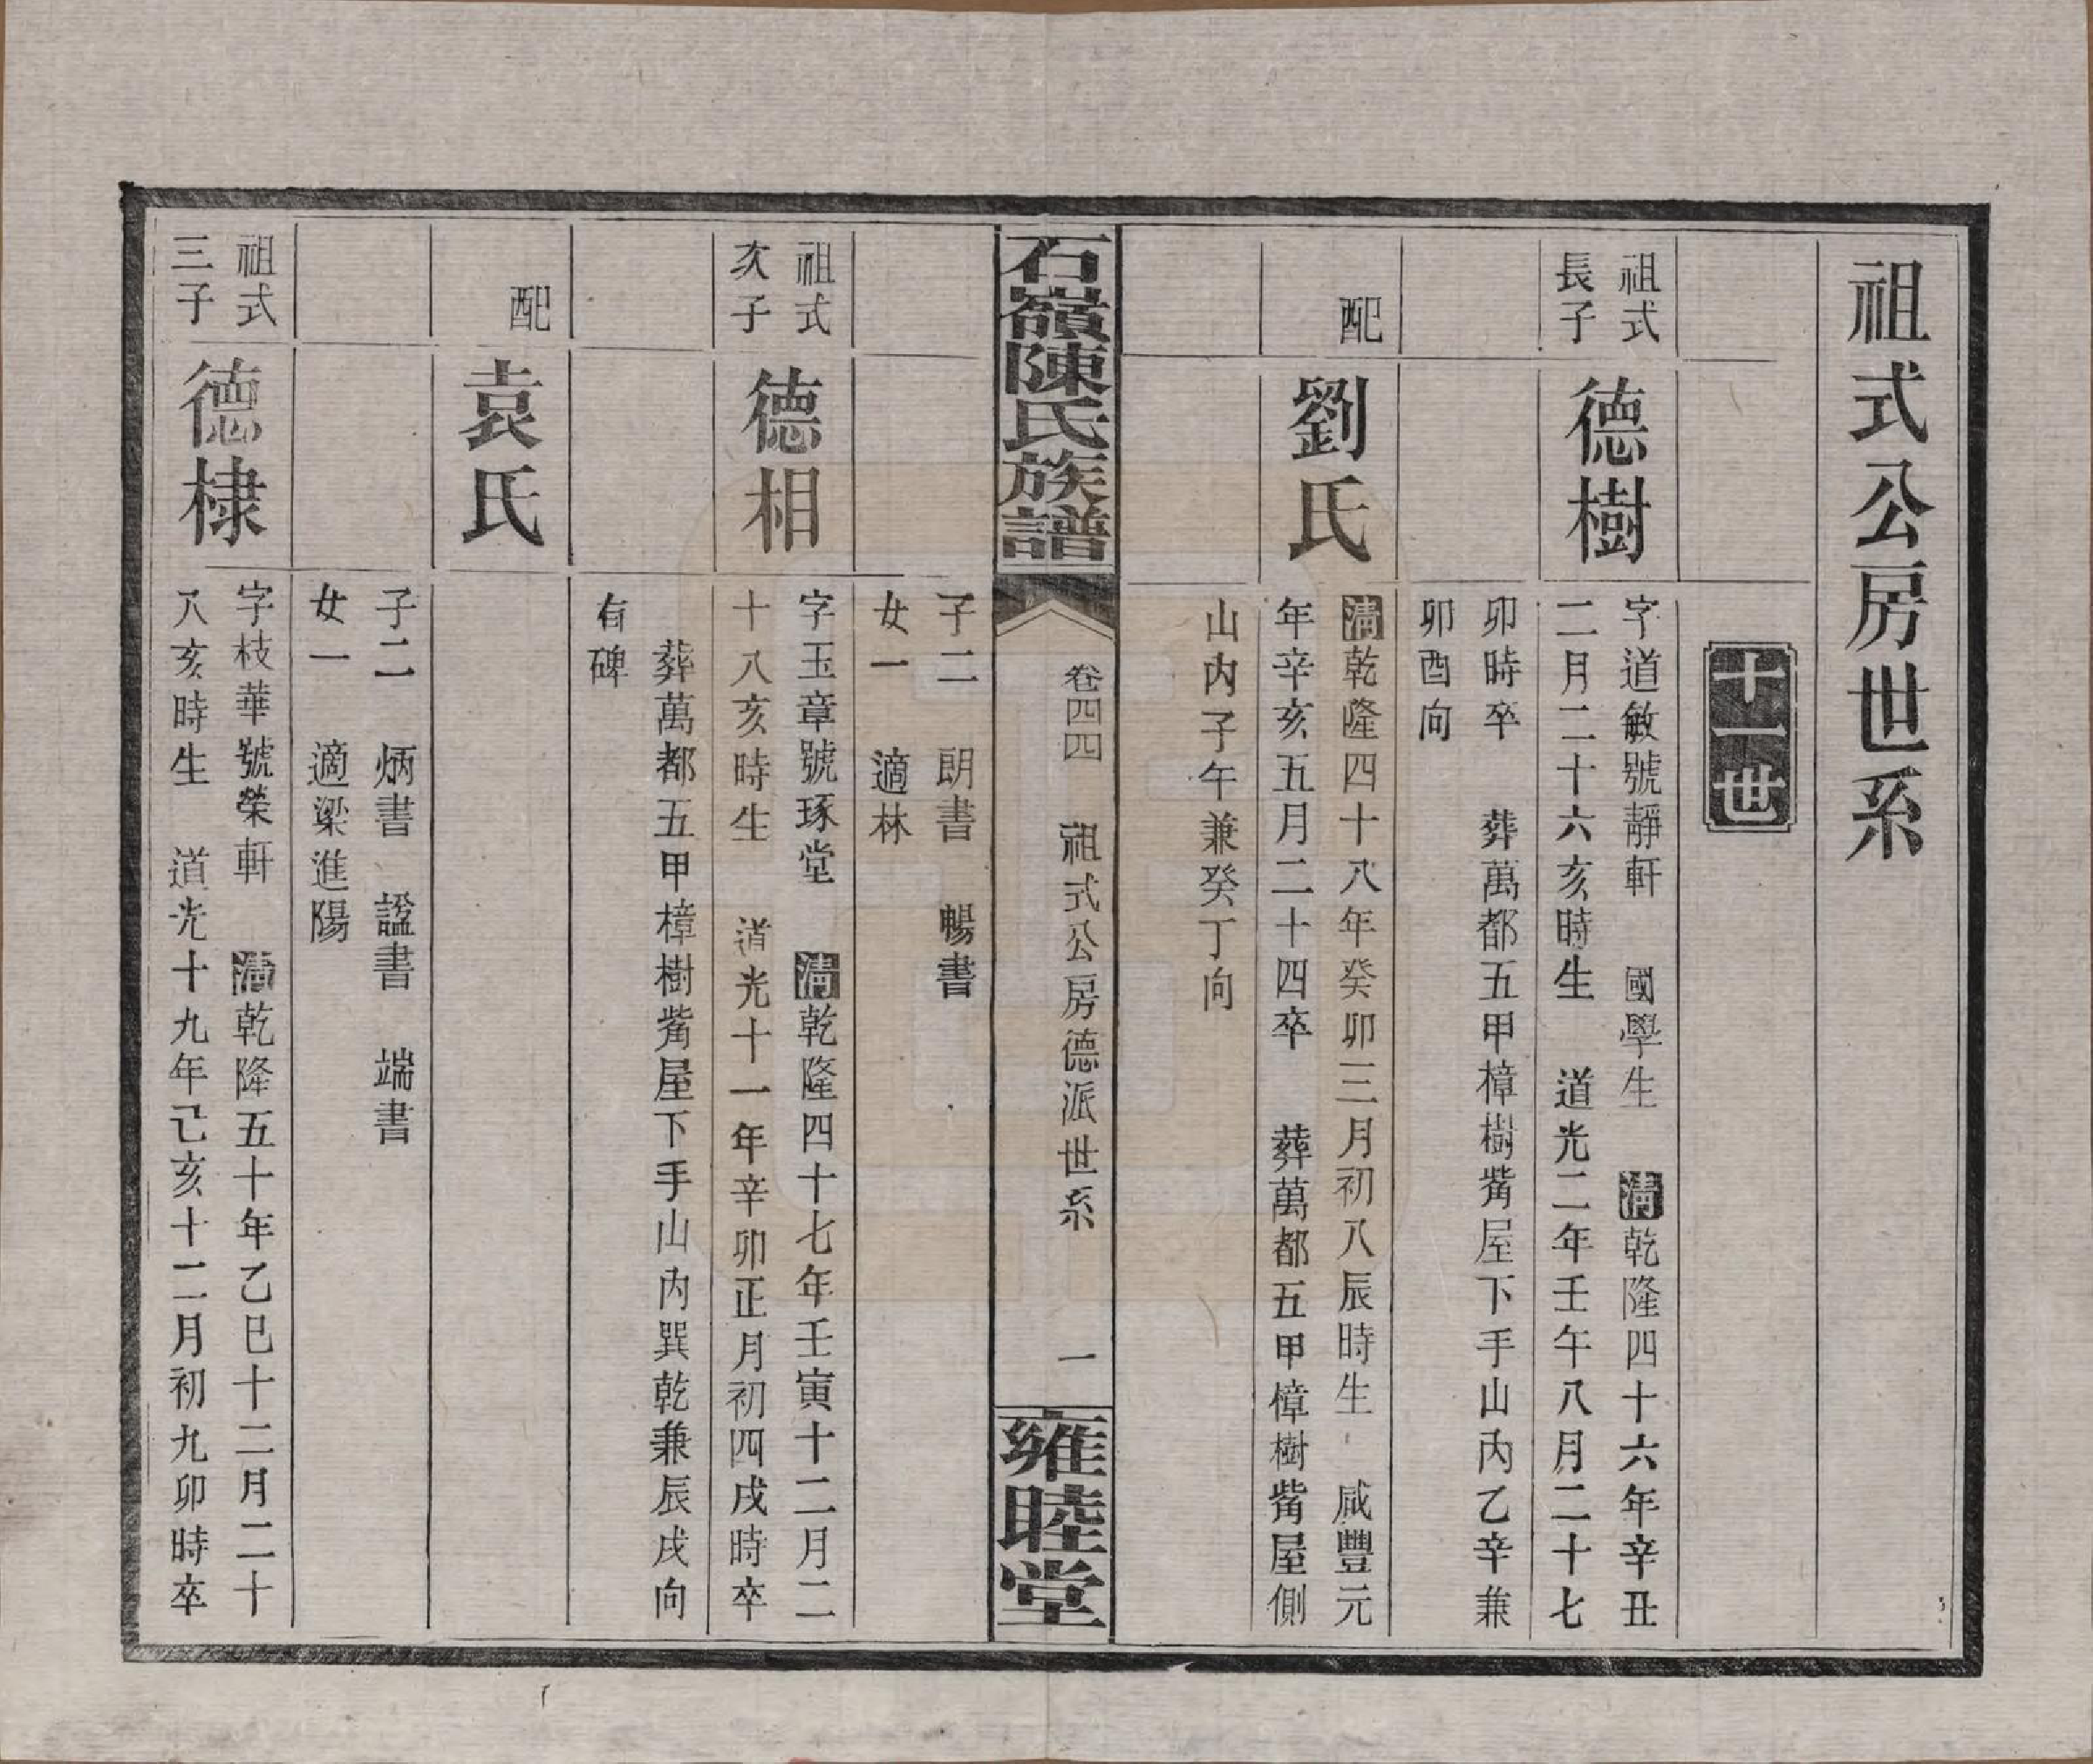 祖式公房世系
十一世
祖式
長子
德樹
字道敏號靜軒　國學生　清乾隆四十六年辛丑
二月二十六亥時生　道光二年壬午八月二十七
卯時卒　葬萬都五甲樟樹觜屋下手山內乙辛兼
卯酉向
配
劉氏
清乾隆四十八年癸卯三月初八辰時生　咸豐元
年辛亥五月二十四卒　葬萬都五甲樟樹觜屋側
山內子午兼癸丁向
石嶺陳氏族譜
卷四四　祖式公房德派世系
一
雍睦堂
子二　朗書　暢書
女一　適林
祖式
次子
德相
字玉章號琢堂　清乾隆四十七年壬寅十二月二
十八亥時生　道光十一年辛卯正月初四戌時卒
葬萬都五甲樟樹觜屋下手山內巽乾兼辰戌向
有碑
配
袁氏
子二　炳書　謚書　端書
女一　適梁進陽
祖式
三子
德棣
字枝華號榮軒　清乾隆五十年乙巳十二月二十
八亥時生　道光十九年己亥十二月初九卯時卒